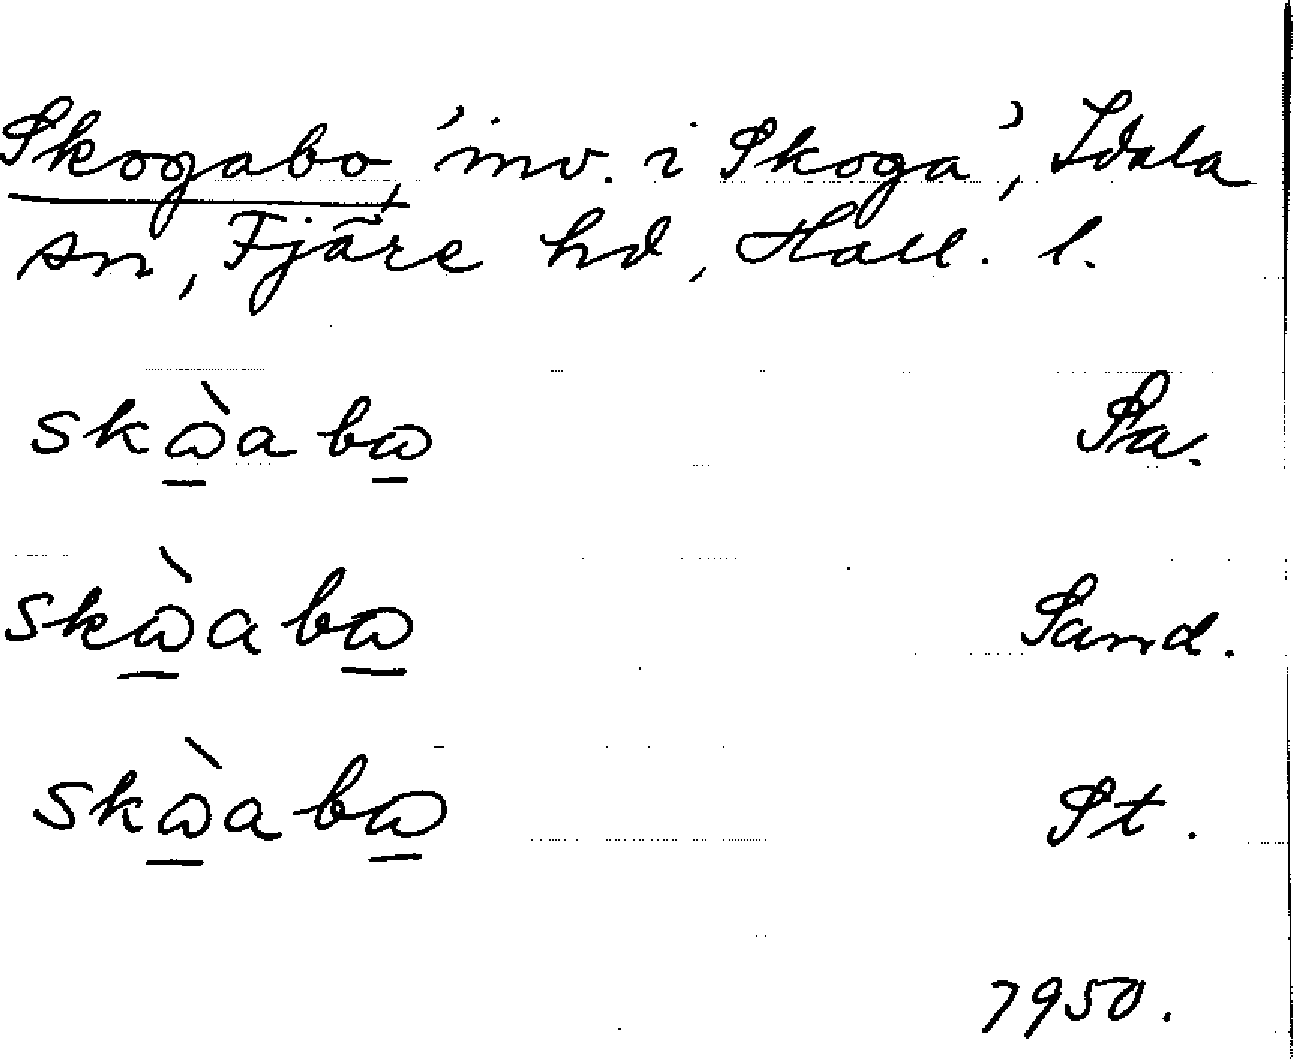 Skogabo, 'inv. i Skoga', Idala
sn, Fjäre hd, Hall. l.
skὼabω Pa.
skὼabω Sand.
skὼabω St.
1950.